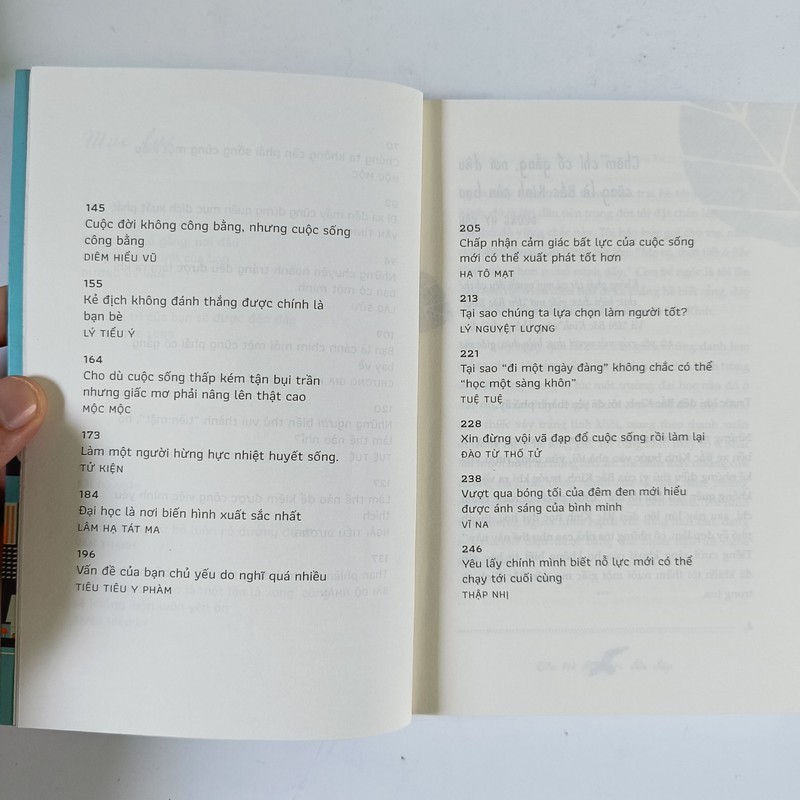 145
Cuộc đời không công bằng, nhưng cuộc sống
công bằng
DIÊM HIỂU VŨ
155
Kẻ địch không đánh thắng được chính là
bạn bè
LÝ TIỂU Ý
164
Cho dù cuộc sống thấp kém tận bụi trần
nhưng giấc mơ phải nâng lên thật cao
MỘC MỘC
173
Làm một người hừng hực nhiệt huyết sống.
TỬ KIỆN
184
Đại học là nơi biến hình xuất sắc nhất
LÂM HẠ TÁT MA
196
Vấn đề của bạn chủ yếu do nghĩ quá nhiều
TIÊU TIÊU Y PHÀM
205
Chấp nhận cảm giác bất lực của cuộc sống
mới có thể xuất phát tốt hơn
HẠ TÔ MẠT
213
Tại sao chúng ta lựa chọn làm người tốt?
LÝ NGUYỆT LƯỢNG
221
Tại sao “đi một ngày đàng” không chắc có thể
“học một sàng khôn”
TUỆ TUỆ
228
Xin đừng vội vã đạp đổ cuộc sống rồi làm lại
ĐÀO TỪ THỐ TỬ
238
Vượt qua bóng tối của đêm đen mới hiểu
được ánh sáng của bình minh
VĨ NA
246
Yêu lấy chính mình biết nỗ lực mới có thể
chạy tới cuối cùng
THẬP NHỊ